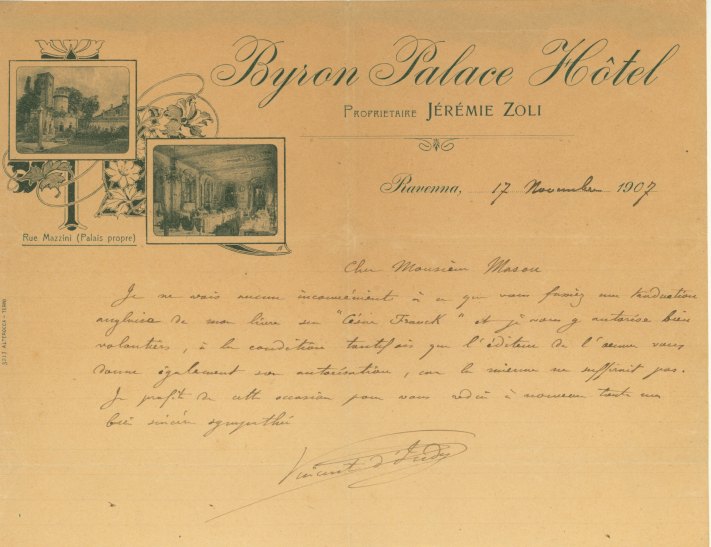 Byron Palace Hôtel
PROPRIETAIRE JÉRÉMIE ZOLI
Ravenna, 17 Novembre 1907
Rue Mazzini (Palais propre)
ALTEROCCA - TERNI
Cher Monsieur Mason
Je ne vois aucun inconvénient à ce que vous fassiez une traduction
anglaise de mon livre sur "César Franck" et je vous y autorise bien
volontiers, à la condition toutefois que l'éditeur de l'œuvre vous
donne également son autorisation, car la mienne ne suffirait pas.
Je profite de cette occasion pour vous redire à nouveau toute ma
bien sincère sympathie
Vincent d'Indy